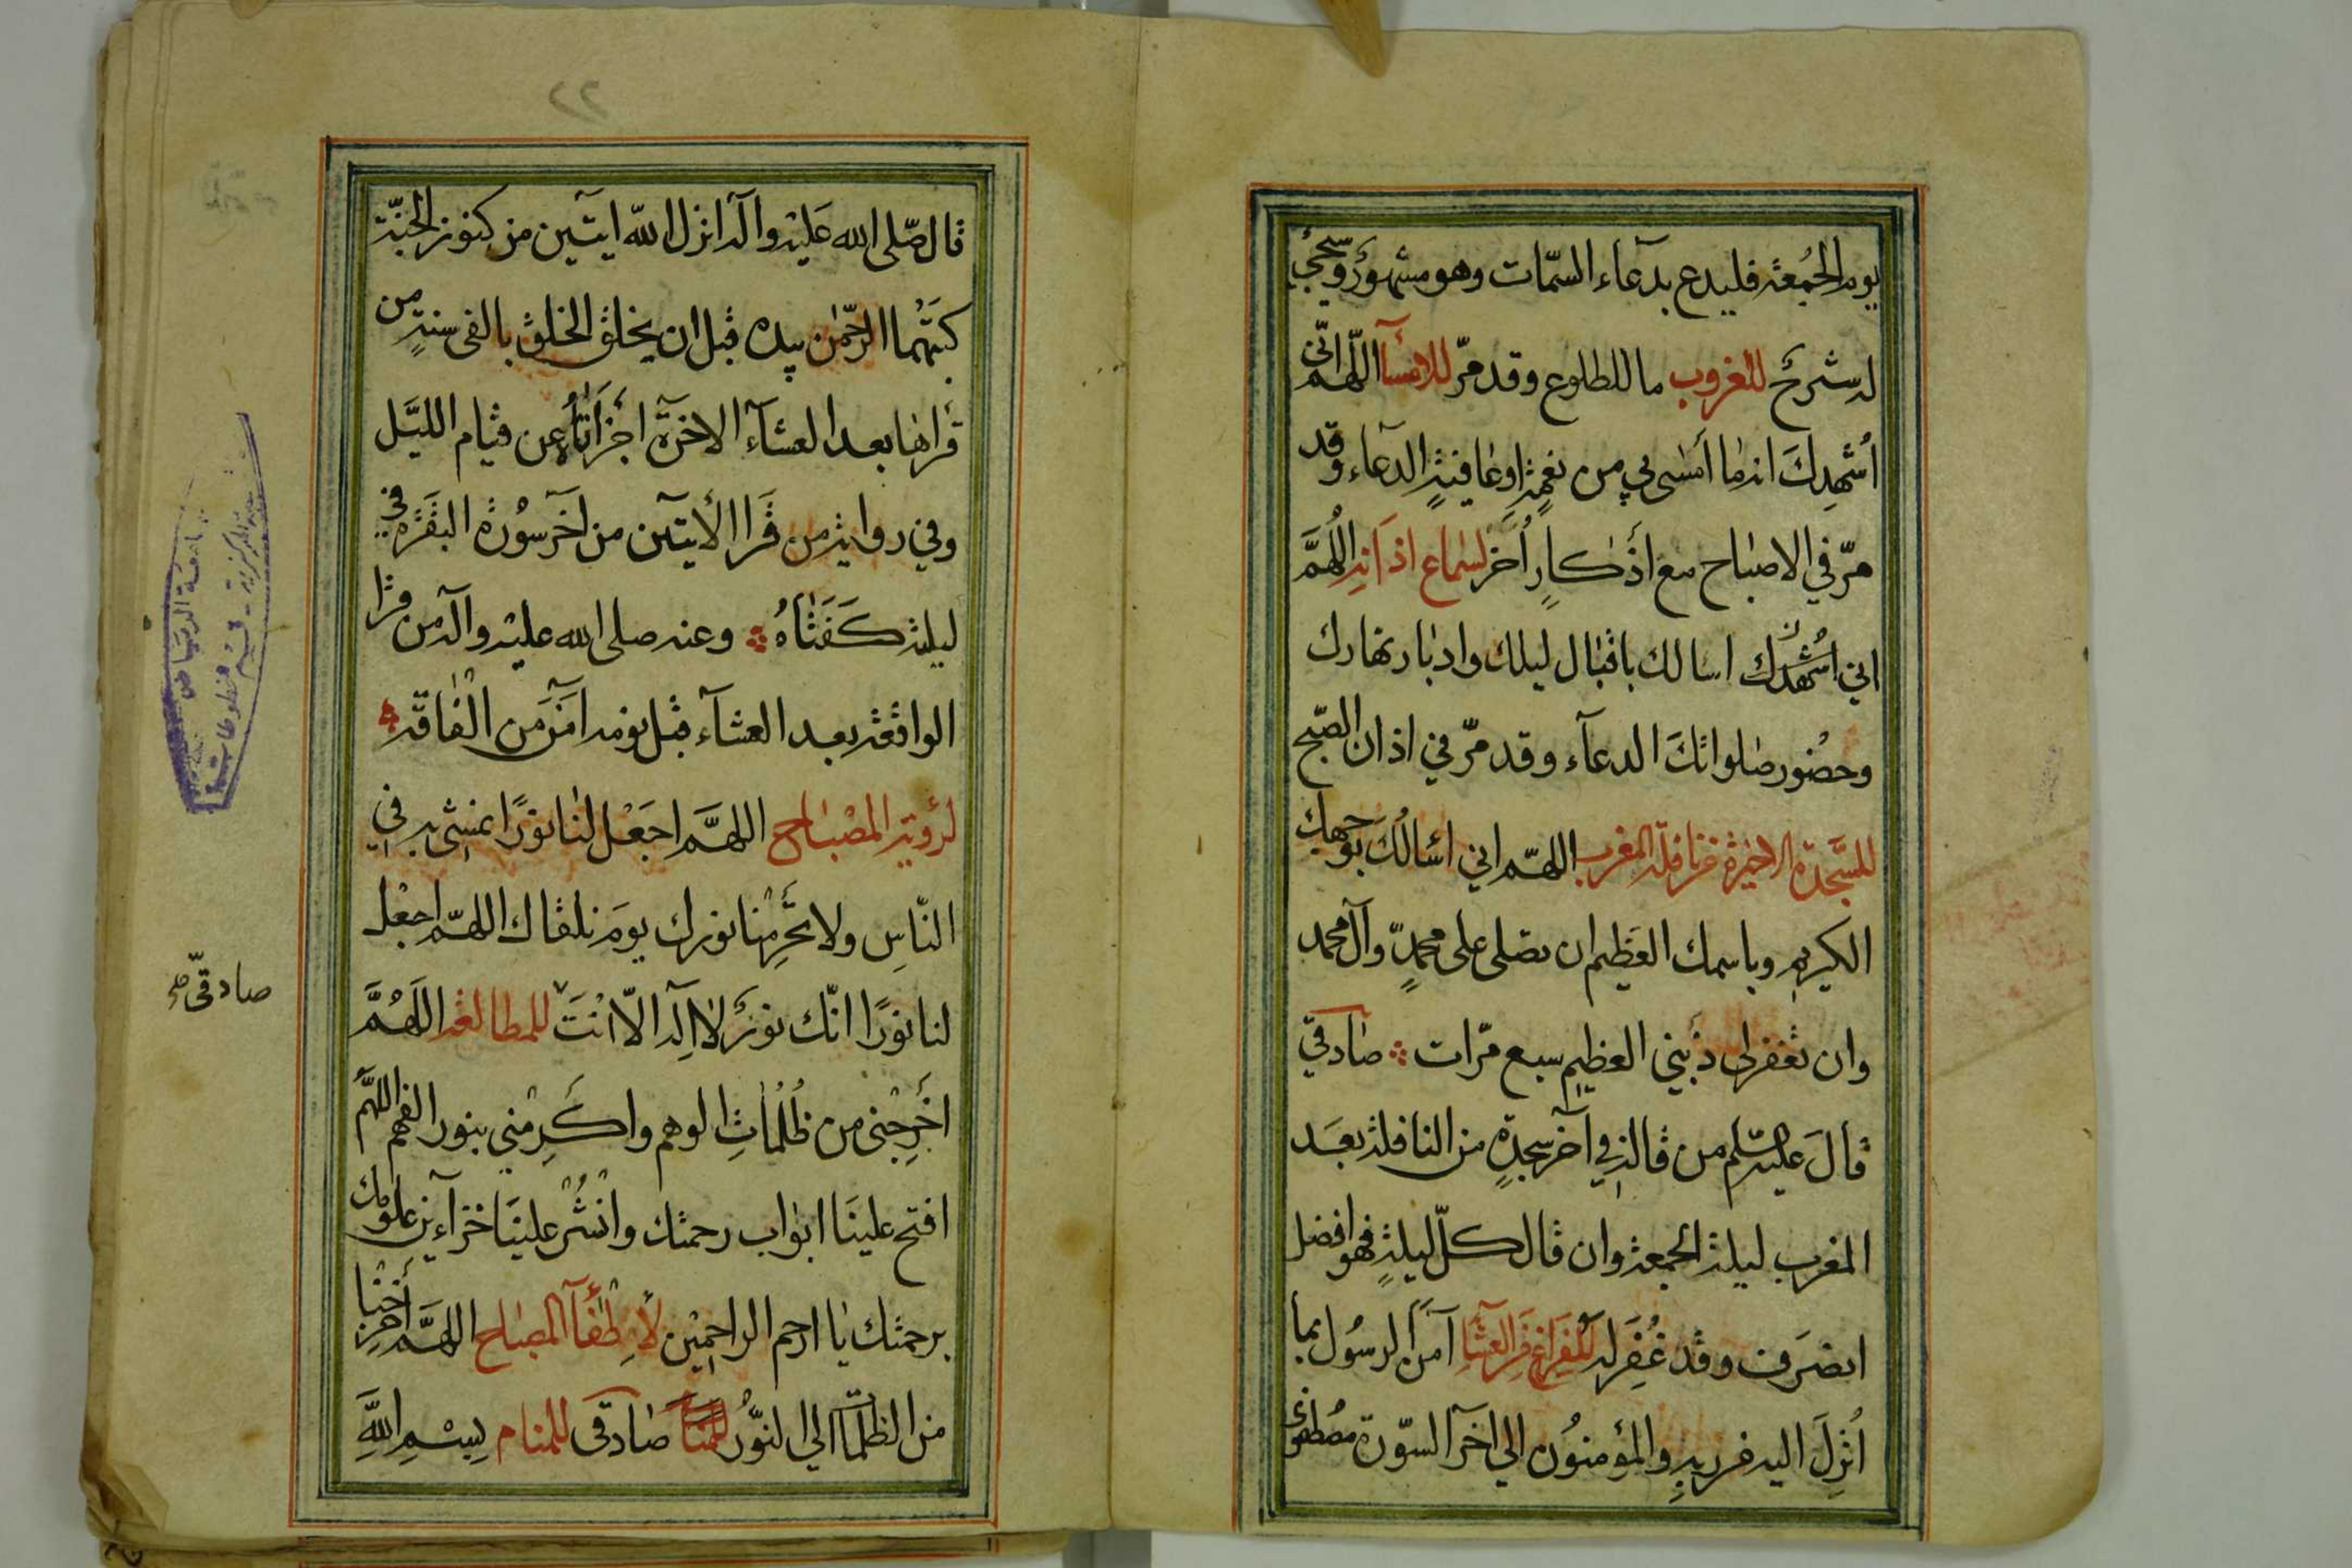 يوم الجمعة فليدع بدعاء السمات وهو مشهور وسيجيء
له شرح للغروب ما للطلوع وقد مر للامسآ اللهم اني
أشهدك انه ما امسى بي من نعمة او عافية الدعاء وقد
مر في الاصباح مع اذكار أخر لسماع اذانه اللهم
اني اسالك باقبال ليلك وادبار نهارك
وحضور صلواتك الدعآء وقد مر في اذان الصبح
للسجدة الاخيرة من نافلة المغرب اللهم اني اسالك بوجهك
الكريم وباسمك العظيم ان تصلى على محمد وآل محمد
وان تغفر لى ذنبي العظيم سبع مرات صادقي
قال عليه السلم من قاله في آخر سجدة من النافلة بعد
المغرب ليلة الجمعة وان قال كل ليلة فهو افضل
انصرف وقد غفر له للفراغ من العشآء آمن الرسول بما
أنزل اليه من ربه والمؤمنون الى اخر السورة مصطفوى
٢٢
قال صلى الله عليه وآله انزل الله ايتين من كنوز الجنة
كتبهما الرحمن بيده قبل ان يخلق الخلق بالفى سنة من
قراهما بعد العشآء الاخرة اجزأتاه عن قيام الليل
وفي رواية من قرا الأيتين من اخر سورة البقرة في
ليلة كفتاه وعنه صلى الله عليه وآله من قرا
الواقعة بعد العشآء قبل نومه امن من الفاقة
لرؤية المصباح اللهم اجعل لنا نورًا نمشى به في
الناس ولا تحرمنا نورك يوم نلقاك اللهم اجعل
لنا نورًا انك نور لا اله الا انت للمطالعة اللهم
اخرجنى من ظلمات الوهم واكرمني بنور الفهم اللهم
افتح علينا ابواب رحمتك وانشر علينا خزآئن علومك
برحمتك يا ارحم الراحمين لإطفآء المصباح اللهم أخرجنا
من الظلمات الى النور صادقى للمنام بسم الله
صادقى